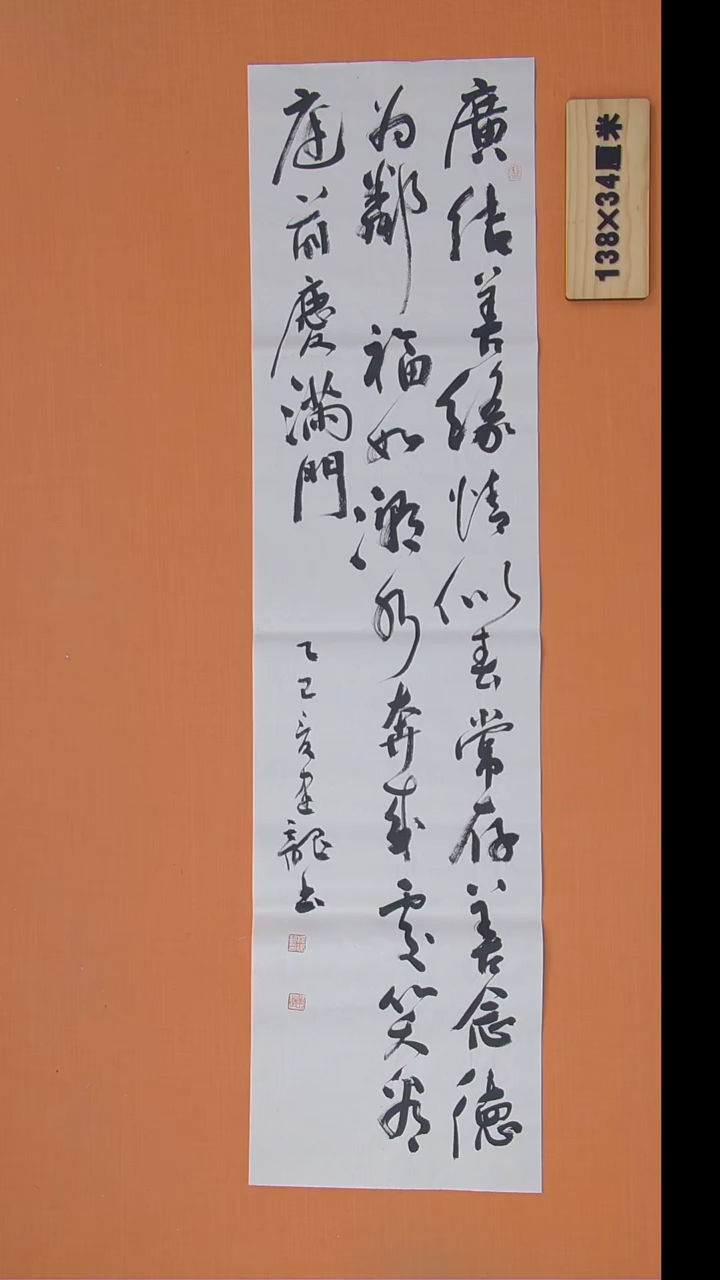 廣結善緣情似春常存善念德
为鄰福如潮水奔來處笑看
庭前慶滿門
乙巳夏建龍书
138×34厘米